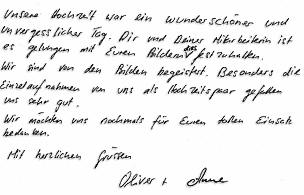 Unsere Hochzeit war ein wunderschöner und
unvergesslicher Tag. Dir und Deiner Mitarbeiterin ist
es gelungen mit Euren Bildern das festzuhalten.
Wir sind von den Bildern begeistert. Besonders die
Einzelaufnahmen von uns als Hochzeitspaar gefallen
uns sehr gut.
Wir möchten uns nochmals für Euren tollen Einsatz
bedanken.
Mit herzlichen Grüssen
Oliver + Anne